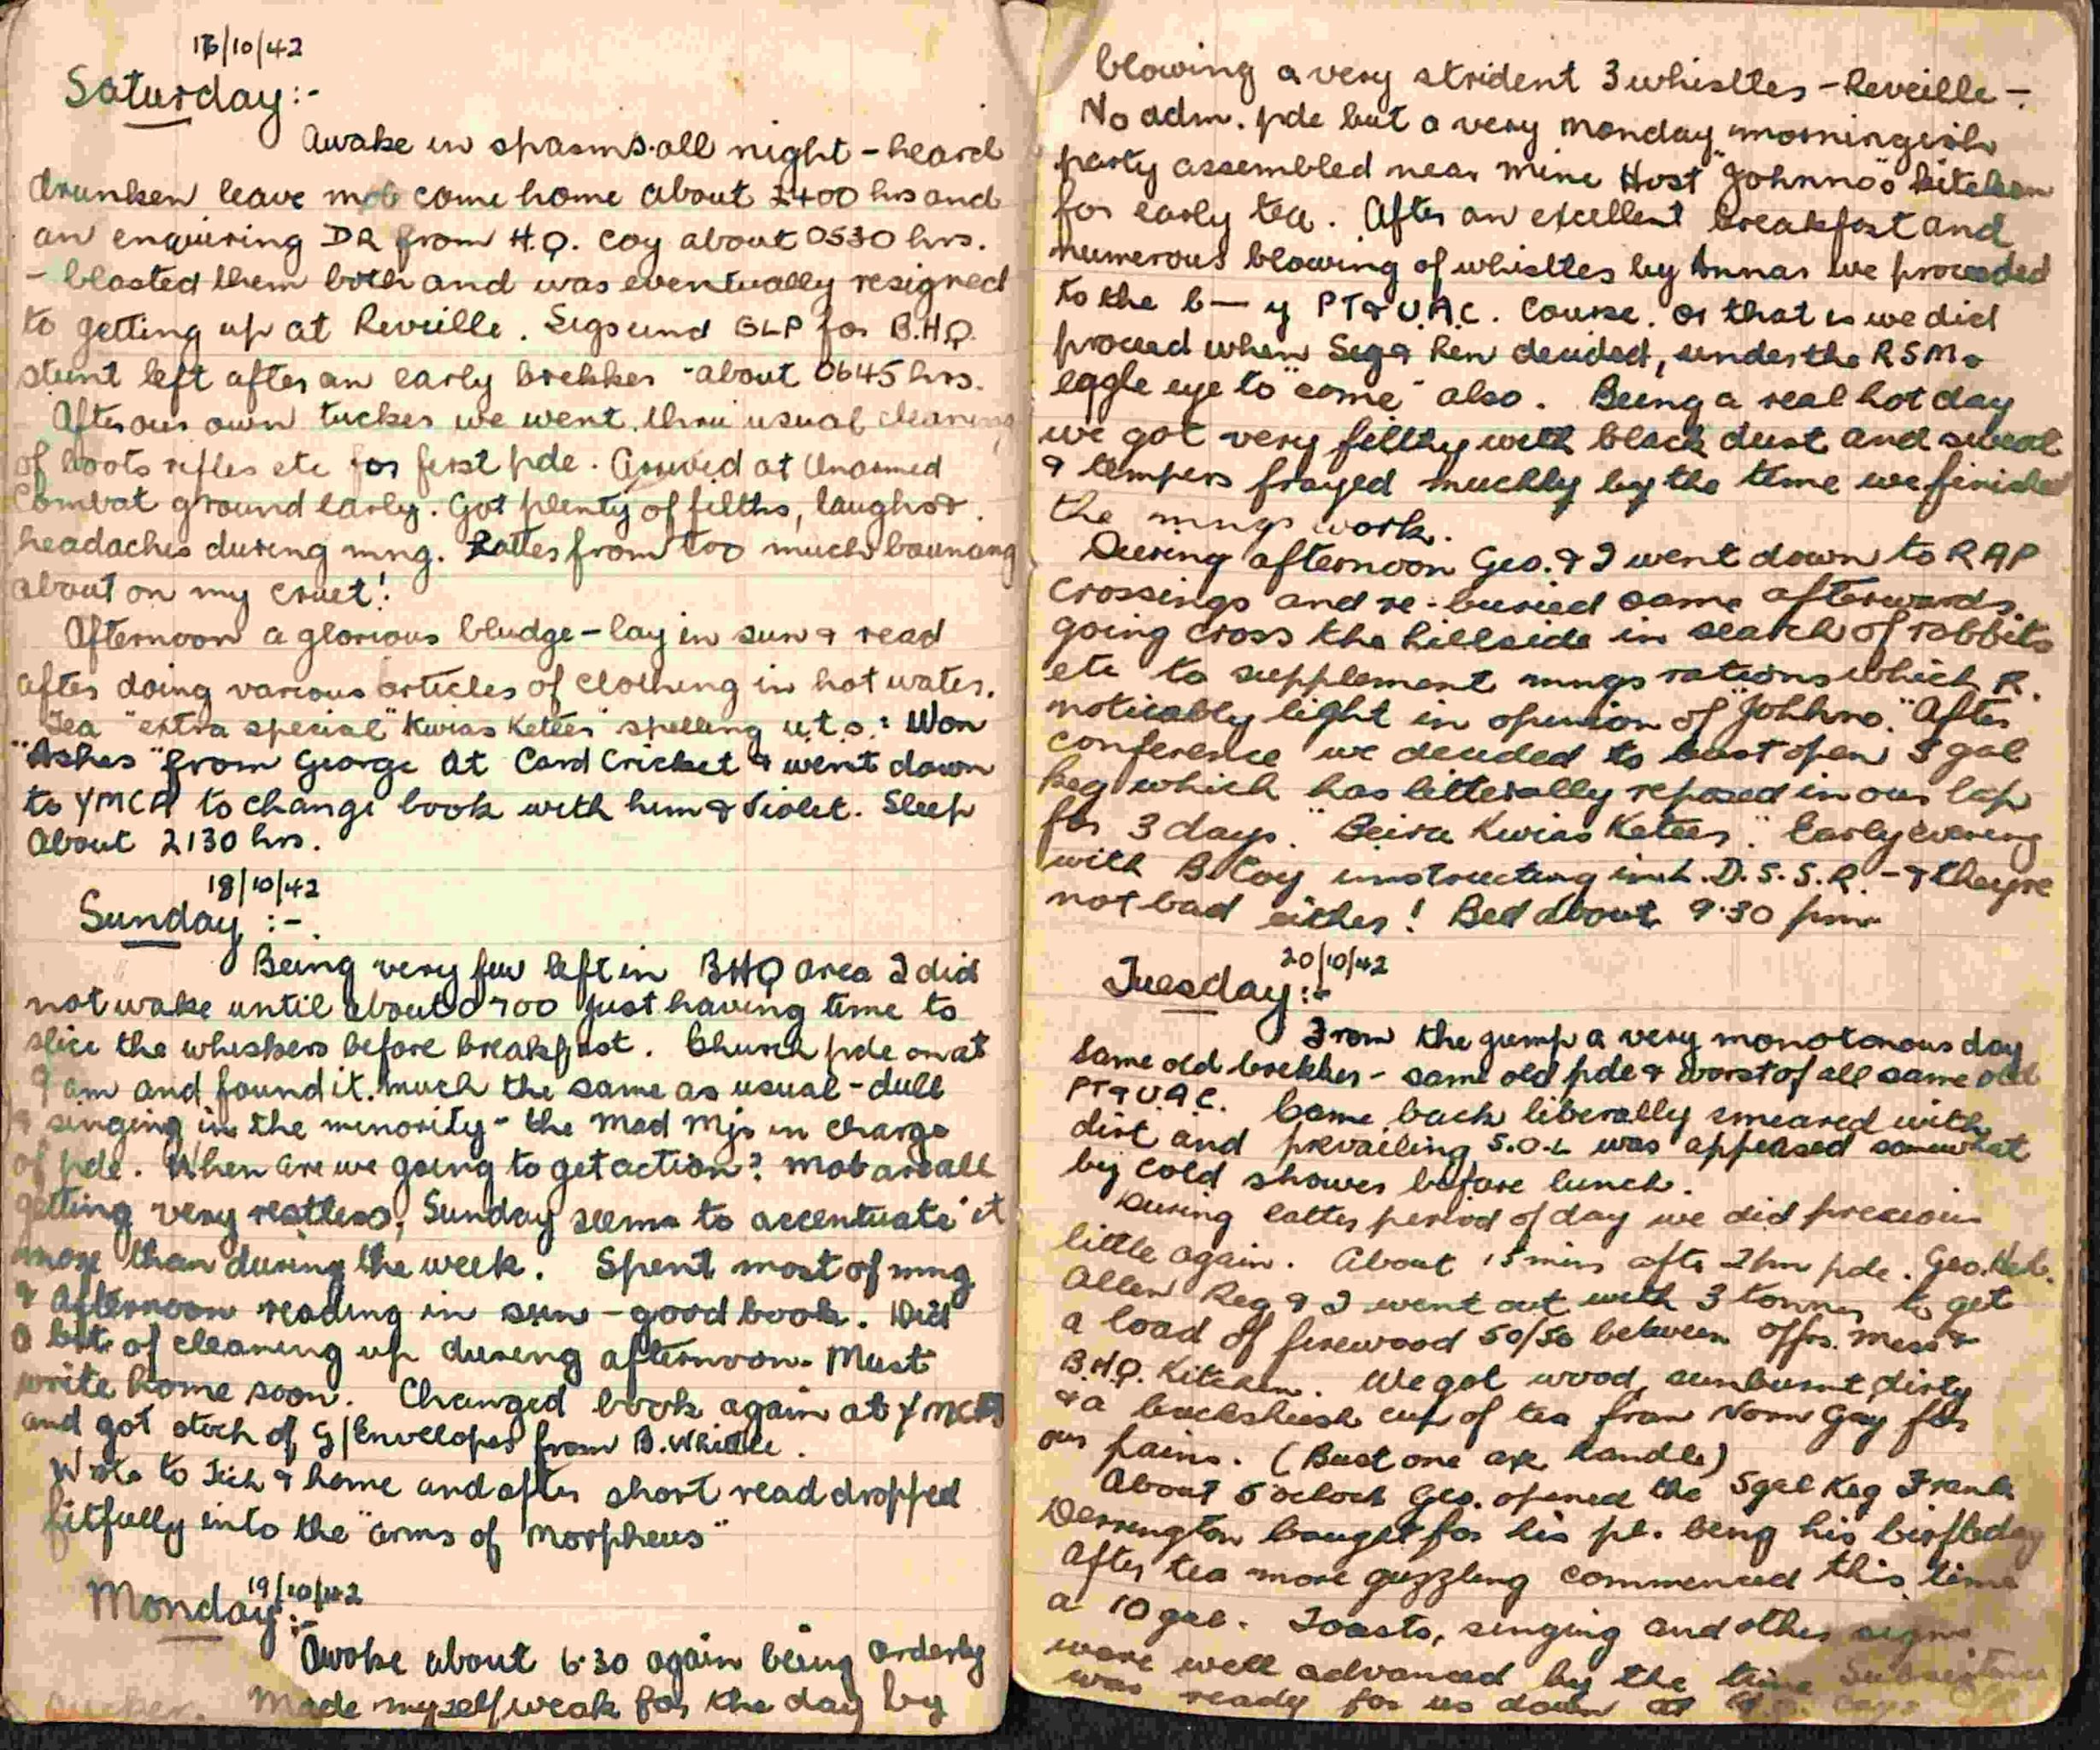 17/10/42
Saturday:-
Awake in spasms all night - heard
drunken leave mob come home about 2400 hrs and
an enquiring DR from H.Q. Coy about 0530 hrs.
- blasted them both and was eventually resigned
to getting up at Reveille. Sigs and GLP for B.H.Q.
stunt left after an early brekker - about 0645 hrs.
After our own tucker we went thru usual cleaning
of boots rifles etc for first pde. Arrived at Unarmed
Combat ground early. Got plenty of filths, laughs &
headaches during mng. Latter from too much bouncing
about on my cruet!
Afternoon a glorious bludge - lay in sun & read
after doing various articles of clothing in hot water.
Tea "extra special" "Kwias Keteer" spelling u.t.s.: Won
"Ashes" from George at Card Cricket & went down
to YMCA to change book with him & Violet. Sleep
about 2130 hrs.
18/10/42
Sunday :-
Being very few left in BHQ area I did
not wake until about 0700 just having time to
slice the whiskers before breakfast. Church pde on at
9 am and found it much the same as usual - dull
& singing in the minority - the Mad Mjr in charge
of pde. When are we going to get action? Mob are all
getting very restless, Sunday seems to accentuate it
more than during the week. Spent most of mng
& Afternoon reading in sun - good book. Did
a bit of cleaning up during afternoon. Must
write home soon. Changed book again at YMCA
and got stock of G/Envelopes from B. Whittle.
Wrote to & home and after short read dropped
fitfully into the "arms of Morpheus"
19/10/42
Monday:-
Awoke about 6.30 again being orderly
Made myself weak for the day by
blowing a very strident 3 whisltes - Reveille -.
No adm. pde but a very Monday morningish
party assembled near mine Host "Johnno's" kitchen
for early tea. After an excellent breakfast and
numerous blowing of whisltes by Annas we proceeded
to the b—y PT & U.A.C. Course. or that is we did
proceed when Segs Ren decided, under the RSMs
eggle eye to "come" also. Being a real hot day
we got very filthy with black dust and sweat
& tempers frayed muchly by the time we finished
the mngs work.
During afternoon Geo. & I went down to RAP
crossings and re-buried same afterwards.
going cross the hillside in search of rabbits
etc to supplement mngs rations which R.
noticably light in opinion of "Johhno." After
conference we decided to bust open 5 gal
keg which has litterally reposed in our lap
for 3 days. "Beira Kwias Keteer". Early evening
with B. Coy instructing in L.D.S.S.R. - & theyre
not bad either! Bed about 9.30 pm
20/10/42
Tuesday:-
From the jump a very monotonous day
Same old brekker - same old pde & worst of all same old
PT & U.A.C. Came back liberally smeared with
dirt and prevailing S.O.L was appeased somewhat
by cold shower before lunch.
During latter period of day we did precious
little again. About 15 mins after 2pm pde. Geo.
Allen Reg & I went out with 3 tonner to get
a load of firewood 50/50 between offrs. mess &
B.H.Q. Kitchen. We got wood, sunburnt, dirty
& a buckshush cup of tea from Norm Gay for
our pains. (Bust one axe handle)
About 5 oclock Geo. opened the 5gal Keg Frank
Derrington bought for his pl. being his birfteday
After tea more guzzling commenced this time
a 10 gal. Toasts, singing and other signs
were well advanced by the time
was ready for us down at